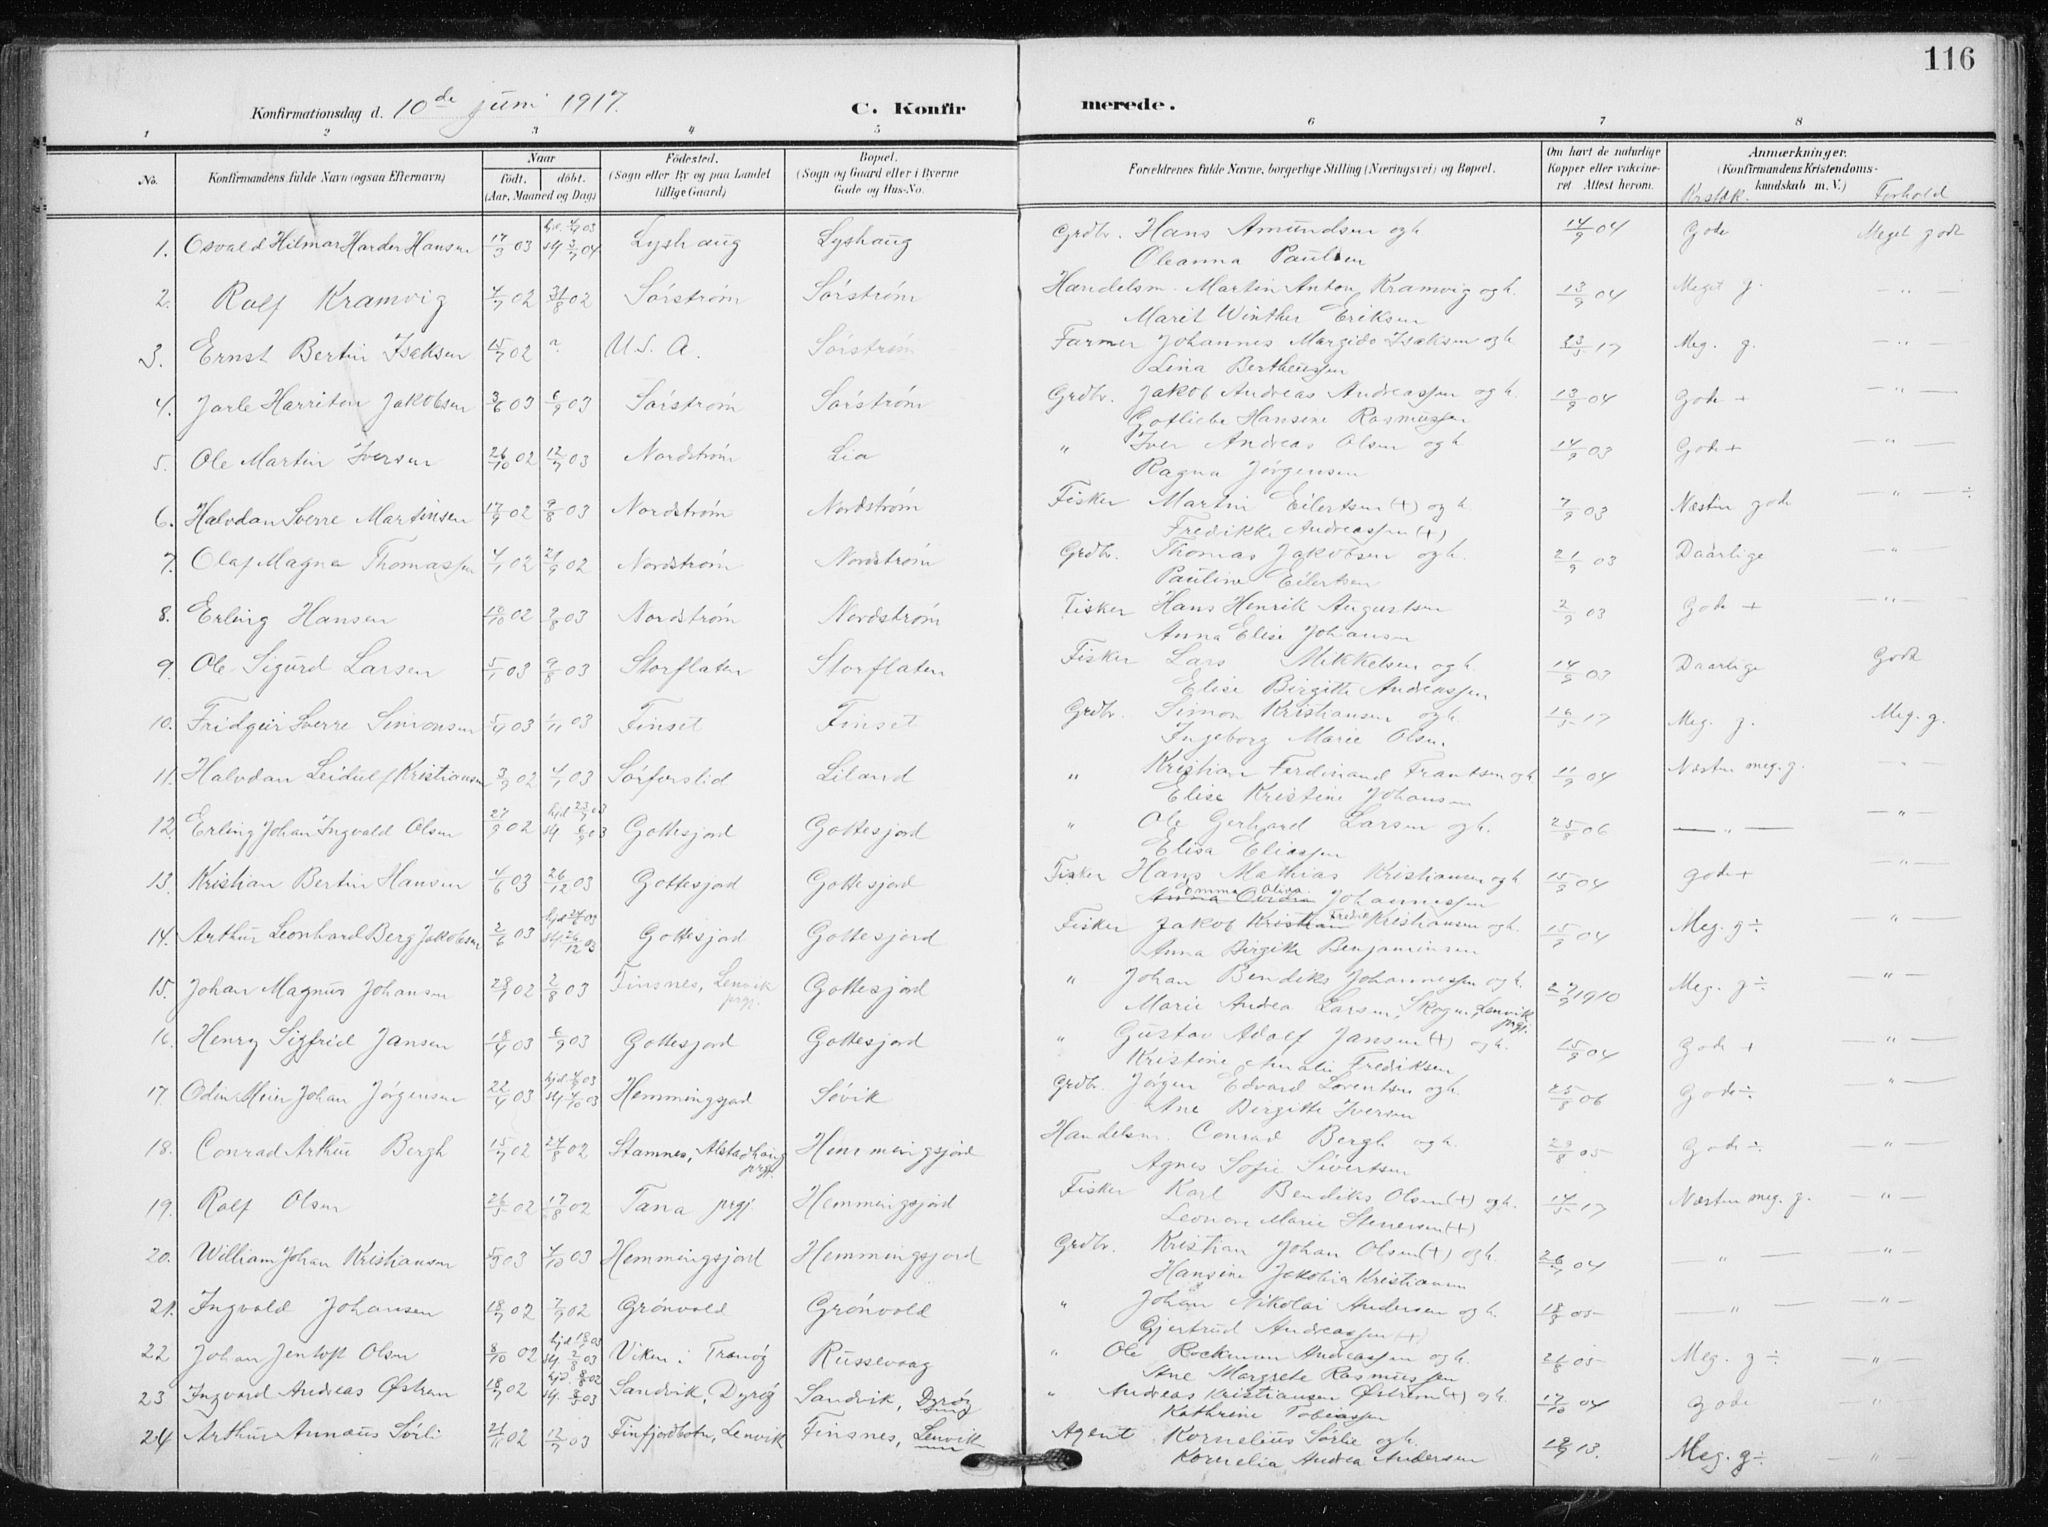 116
Konfirmationsdag d. 10de juni 1917.
C. Konfirmerede.
1 2 3 4 5 6 7 8
No. Konfirmandens fulde Navn (ogsaa Efternavn) Naar født. døbt. (Aar, Maaned og Dag) Fødested. (Sogn eller By og paa Landet tillige Gaard) Bopæl. (Sogn og Gaard eller i Byerne Gade og Hus-No. Forældrenes fulde Navne, borgerlige Stilling (Næringsvei) og Bopæl. Om havt de naturlige Kopper eller vaccineret Attest herom. Anmærkninger. (Konfirmandens Kristendomskundskab m. V.)
Forhold
1. Osvald Hilmar Harder Hansen 17/3 03 Lyshaug Lyshaug Grdbr. Hans Amundsen og h. 14/9 04 Gode Meget godt
Oleanna Paulsen
2. Rolf Kramvig 4/7 02 31/8 02 Sørstrøm Sørstrøm Handelsm. Martin Anton Kramvig og h. 13/9 04 Meget g. — " —
Marit Winther Eriksen
3. Ernst Bertin Isaksen 15/7 02 ? U.S.A. Sørstrøm Farmer Johannes Margido Isaksen og h. 17 Meg. g. — " —
Lina Bertheussen
4. Jarle Harriton Jakobsen 3/6 03 6/9 03 Sørstrøm Sørstrøm Grdbr. Jakob Andreas Andreassen og h. 13/9 04 Gode + — " —
Gotliebe Hansine Rasmussen
5. Ole Martin Iversen 26/10 02 12/7 03 Nordstrøm Lia " Iver Andreas Olsen og h 14/9 03 Gode + — " —
Ragna Jørgensen
6. Halvdan Sverre Martinsen 17/9 02 9/8 03 Nordstrøm Nordstrøm Fisker Martin Eilertsen (+) og h. 7/9 03 Næsten gode — " — ÷
Fredikke Andreassen (+)
7. Olaf Magne Thomassen 4/7 02 21/9 02 Nordstrøm Nordstrøm Grdbr. Thomas Jakobsen og h. 21/9 03 Daarlige — " —
Pauline Eilertsen
8. Erling Hansen 10/10 02 03 Nordstrøm Nordstrøm Fisker Hans Henrik Augustsen 2/9 03 Gode + — " —
Anna Elise Johansen
9. Ole Sigurd Larsen 5/1 03 9/8 03 Storflaten Storflaten Fisker Lars Mikkelsen og h. 14/9 03 Daarlige Godt
Elise Birgitte Andreassen
10. Fridgeir Sverre Simonsen 5/4 03 1/11 03 Finset Finset Grdbr. Simon Kristiansen og h. 16/5 17 Meg. g. Meg. g.
Ingeborg Marie Olsen
11. Halvdan Leidulf Kristiansen 3/9 02 4/1 03 Sørforslid Liland " Kristian Ferdinand Frantsen og h 11/9 04 Næsten meg. g. — " —
Elise Kristine Johansen
12. Erling Johan Ingvald Olsen 27/9 02 Gottesjord Gottesjord " Ole Gerhard Larsen og h. 25/8 06 — " — — " —
Elisa Eliassen
13. Kristian Bertin Hansen 4/6 03 26/12 03 Gottesjord Gottesjord Fisker Hans Mathias Kristiansen og h 15/9 04 gode + — " —
Johannessen
14. Arthur Leonhard Berg Jakobsen 2/6 03 hjd 03 stf. 26/12 03 Gottesjord Gottesjord Fisker Jakob Kristian Fredrik Kristiansen og h. 15/9 04 Meg. g ÷ — " —
Anna Birgitte Benjaminsen
15. Johan Magnus Johansen 28/7 02 2/8 03 Finsnes, Lenvik prgj. Gottesjord " Johan Bendiks Johannessen og h. 1910 Meg. g ÷ — " —
Marie Andrea Larsen, Skogen, Lenvik prgj.
16. Henry Sigfrid Jansen 18/4 03 6/9 03 Gottesjord Gottesjord " Gustav Adolf Jansen (+) og h. 15/9 04 Gode + — " —
Kristine Amalie Fredriksen
17. Odin Meier Johan Jørgensen 22/4 03 Hemmingsjord Søvik Grdbr. Jørgen Edvard Lorentsen og h. 25/8 06 Gode ÷ — " —
Ane Birgitte Iversen
18. Conrad Arthur Bergh 15/7 02 24/8 02 Stamnes, Alstadhaug prgj. Hemmingsjord Handelsm. Conrad Bergh og h. 29/8 05 Gode ÷ — " —
Agnes Sofie Sivertsen
19. Rolf Olsen 26/5 02 17/8 02 Tana prgj. Hemmingsjord Fisker Karl Bendiks Olsen (+) og h. 14/5 17 Næsten meg. g. — " —
Leonore Marie Stenersen (+)
20. William Johan Kristiansen 5/9 03 4/10 03 Hemmingsjord Hemmingsjord Grdbr. Kristian Johan Olsen (+) og h. 26/7 04 — " — — " —
Hansine Jakobia Kristiansen
21. Ingvald Johansen 18/7 02 7/9 02 Grønvold Grønvold " Johan Nikolai Andersen og h. 18/8 05 — " — — " —
Gjertrud Andreassen (+)
22 Johan Jentoft Olsen 8/10 02 Viken i Tranøy Russevaag " Ole Rockman Andreassen og h. 21/8 05 Meg. g ÷ — " —
Ane Margrete Rasmussen
23 Ingvard Andreas Østrem 18/7 02 Sandvik, Dyrøy Sandvik, Dyrøy " Andreas Kristiansen Østrem (+) og h. 17/10 04 gode — " —
Kathrine Tobiassen
24 Arthur Annæus Sørli 21/11 02 12/7 03 Finfjordbotn, Lenvik Finsnes, Lenvik Agent Kornelius Sørlie og h. 13. Meg. g ÷ — " —
Kornelia Andrea Andersen